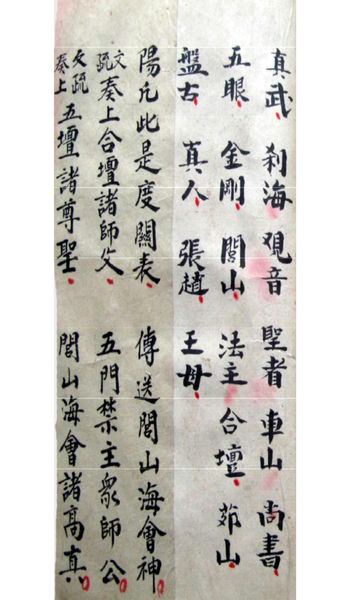 真武 刹海 觀音 聖者 車山 尚書
五眼 金剛 閭山 法主 合壇 茆山
盤古 真人 張趙 王母
陽元此是度關表 傳送閭山海會神
文疏奏上合壇諸師父 五門禁主眾師公
文疏奏上五壇諸尊聖 閭山海會諸高真